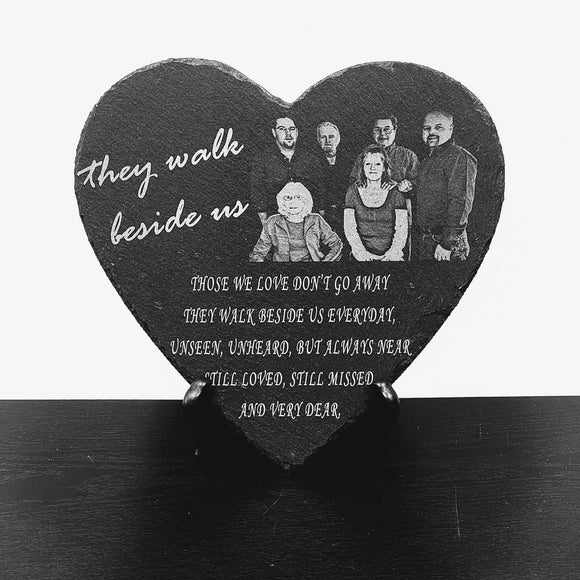 they walk
beside us
THOSE WE LOVE DON'T GO AWAY
THEY WALK BESIDE US EVERYDAY,
UNSEEN, UNHEARD, BUT ALWAYS NEAR
STILL LOVED, STILL MISSED
AND VERY DEAR.